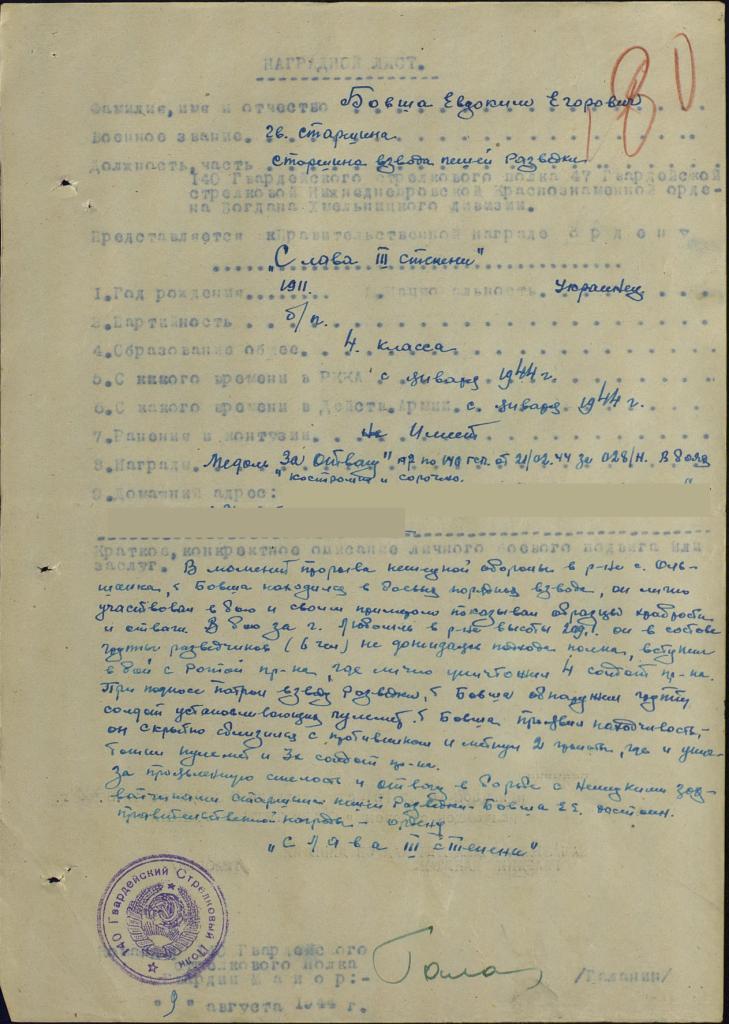 НАГРАДНОЙ ЛИСТ.
Фамилия, имя и отчество Бовша Евдоким Егорович
Военное звание. гв. старшина
Должность, часть старшина взвода пешей Разведки
140 Гвардейского стрелкового полка 47 Гвардейской
стрелковой Нижнеднепровской Краснознаменной орде-
на Богдана Хмельницкого дивизии.
Представляется к Правительственной награде Ордену
"Слава III степени"
1. Год рождения 1911. 2. Национальность Украинец
3. Партийность б/п.
4. Образование общее. 4. класса
5. С какого времени в РККА с января 1944 г.
6. С какого времени в Действ. Армии. с январа 1944 г.
7. Ранения и контузии. Не Имеет
8. Награды Медаль "За Отвагу" по 140 гсп. от 21/02.44 за 028/н. В боях
Костромка и Сорочино.
9. Домашний адрес:
Краткое, конкретное описание личного боевого подвига или
заслуг. В момент прорыва немецкой обороны в р-не с.
Бовша находился в боевых порядках взвода, он лично
участвовал в бою и своим примером показывал образцы храбрости
и отваги. В бою за г. Люблин в р-не высоты он в составе
группы разведчиков (6 чел) не дожидаясь подхода полка, вступил
в бой с Ротой пр-ка, где лично уничтожил 4 солдат пр-ка.
При подносе патрон взводу Разведки, Бовша обнаружил группу
солдат устанавливающих пулемет. Бовша проявил находчивость,
он скрытно сблизился с противником и метнул 2 гранаты, где и унич-
тожил пулемет и 3х солдат пр-ка.
За проявленную смелость и отвагу в борьбе с немецкими зах-
ватчиками старшина пешей Разведки Бовша Е.Е. достоин
правительственной награды - ордену
"СЛАВА III степени"
140 Гвардейский Стрелковый Полк
Гвардейского
стрелкового полка
Гвардии Майор:-
/Галанин/
"9" августа 1944 г.